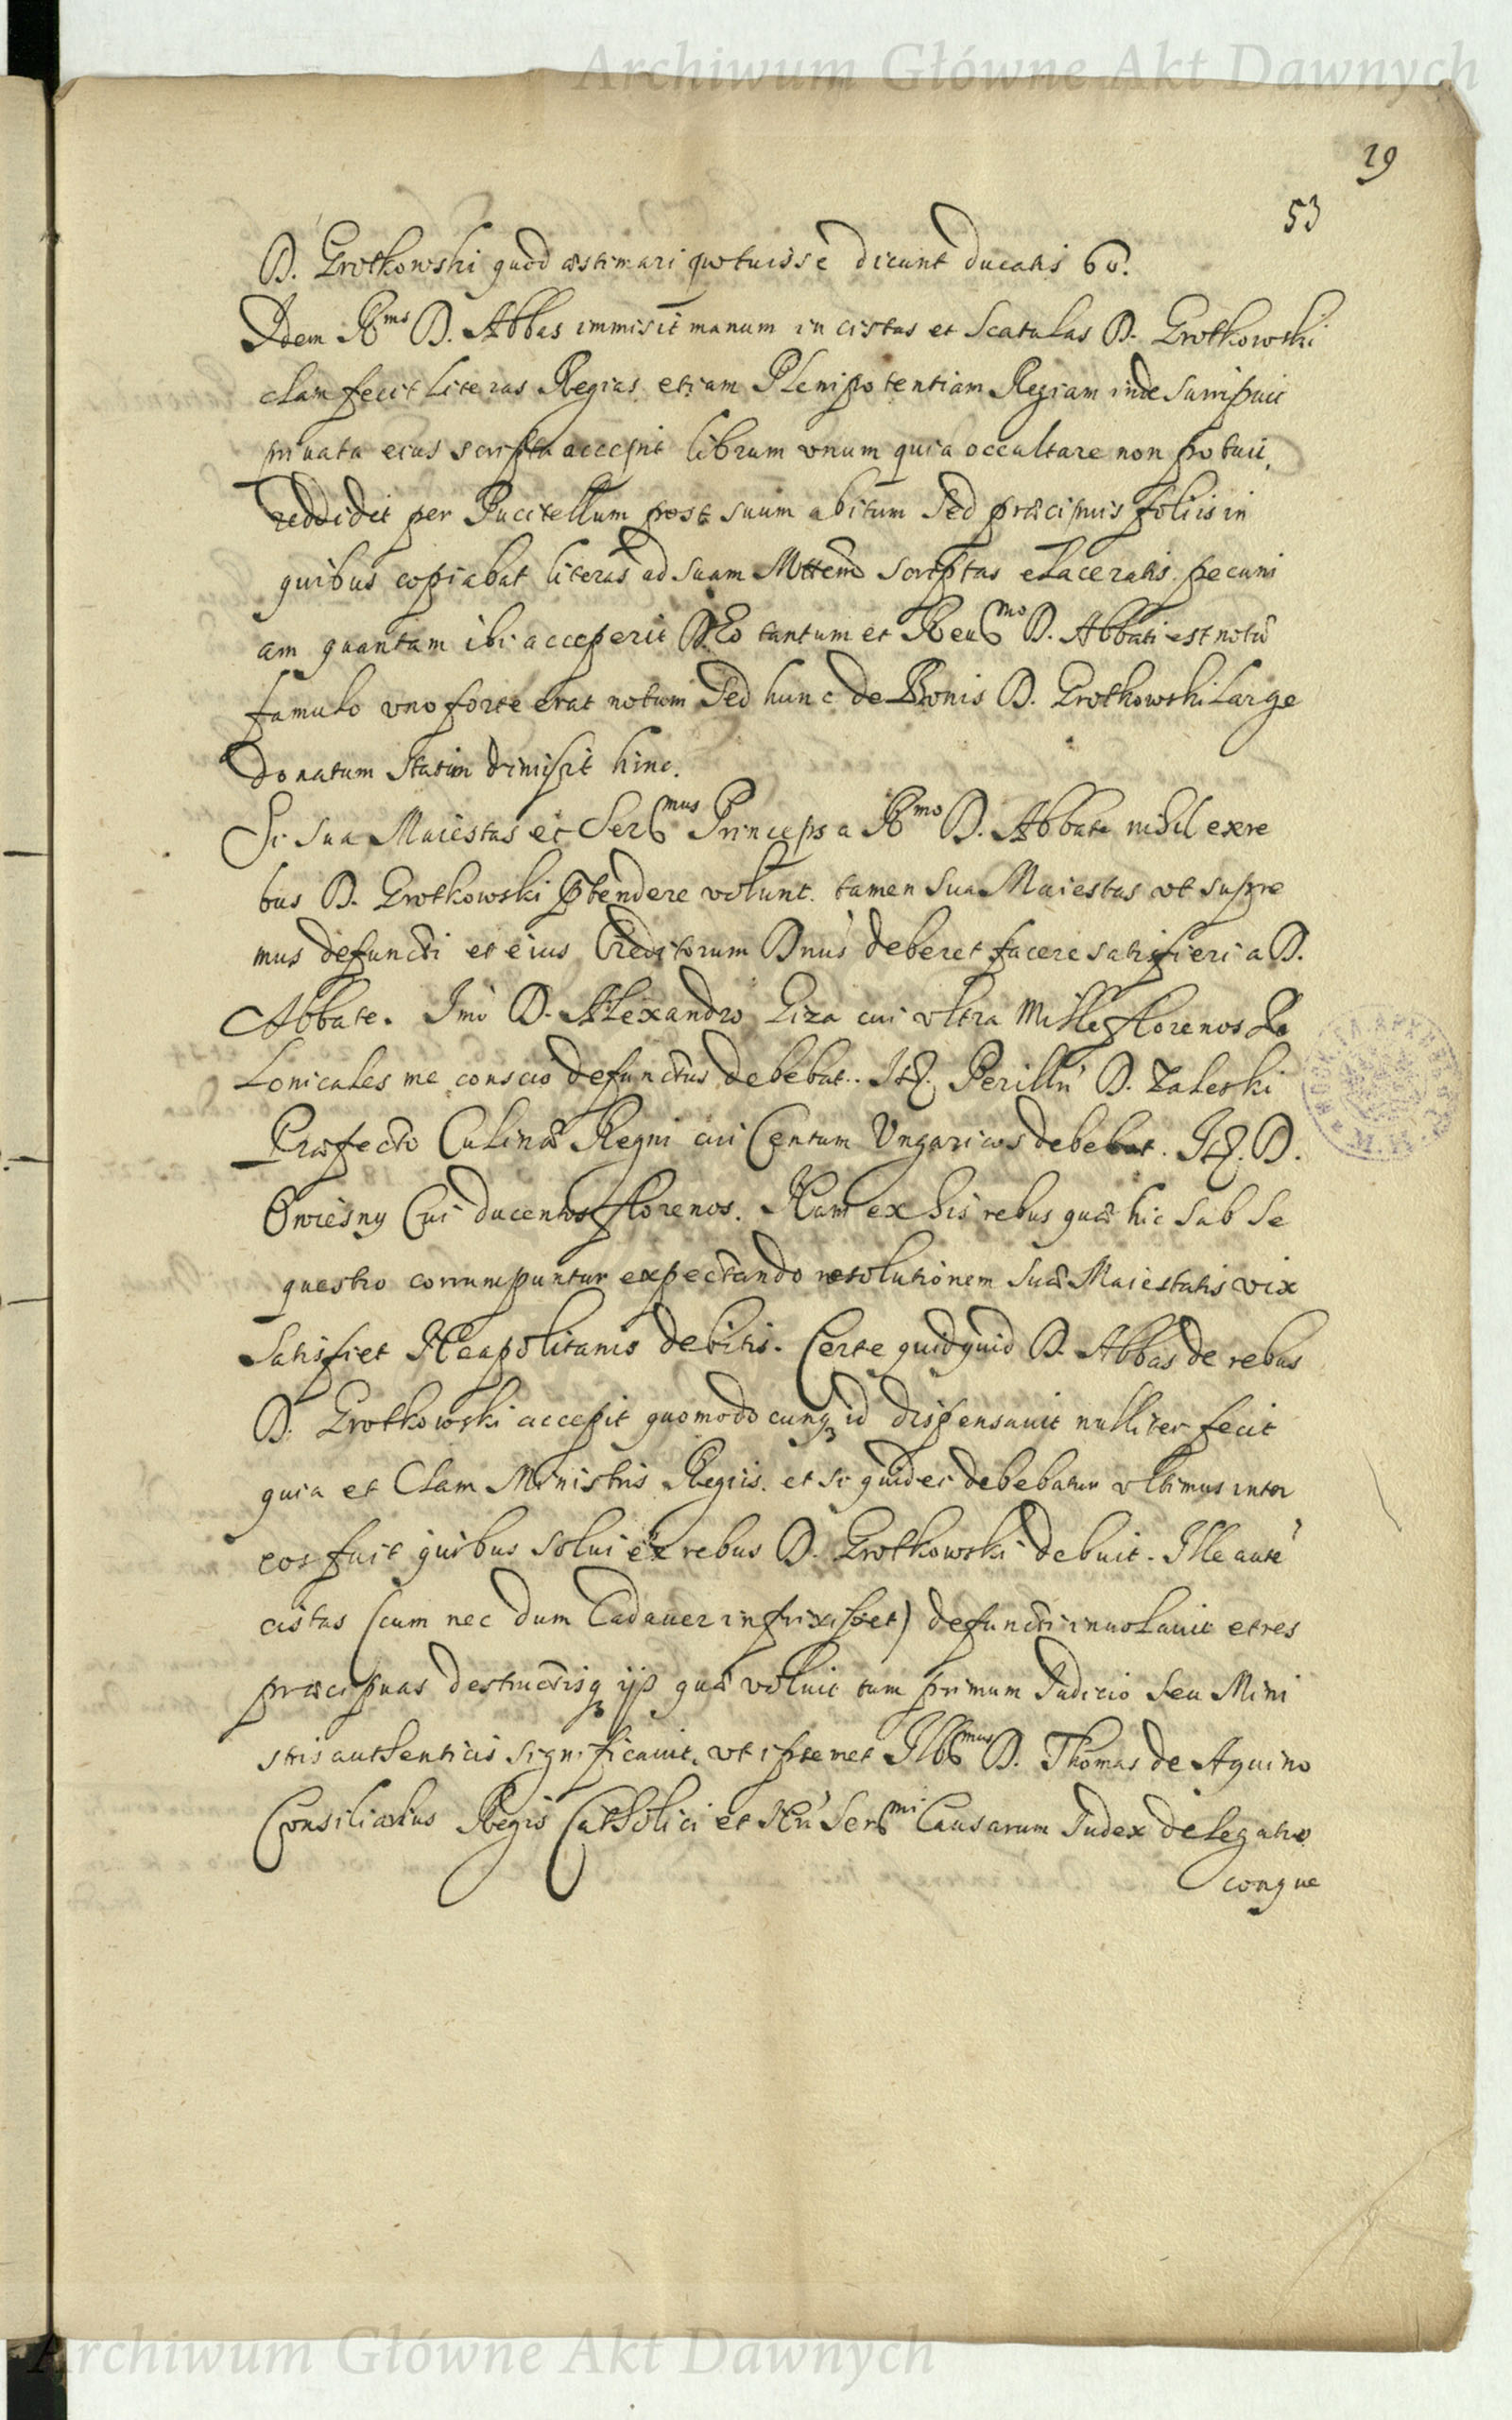 Archiwum Główne Akt Dawnych
29
53
D. Grotkowski quod æstimari potuisse dicunt ducatis 60.
Idem R̃mus D. Abbas immisit manum in cistas et Scatulas D. Grotkowski
clam fecit literas Regias etiam Plenipotentiam Regiam inde surripuit
privata eius scripta accepit librum vnum quia occultare non potuit,
reddidit per Puccitellum post suum abitum Sed præcipuis foliis in
quibus copiabat literas ad suam Mttem scriptas elaceratis pecuni
am quantam ibi acceperit Deo tantum et Reu͠mo D. Abbati est notũ
famulo vno forte erat notum Sed hunc de Bonis D. Grotkowski Large
donatum Statim dimisit hinc.
Si Sua Maiestas et Ser͠mus Princeps a R̃mo D. Abbate nihil ex re
bus D. Grotkowski p̃tendere volunt. tamen Sua Maiestas vt supre
mus defuncti et eius Creditorum Dnus deberet facere satisfieri a D.
Abbate. Imò D. Alexandro Liza cui vltra Mille florenos Po
Lonicales me conscio defunctus debebat. It. Perillri D. Zaleski
Præfecto Culinæ Regni cui Centum Vngaricos debebat. It. D.
Owiesny Cui ducentos florenos. Nam ex his rebus quæ hic Sub Se
questro corrumpuntur expectando resolutionem Suæ Maiestatis vix
Satisfiet Neapolitanis debitis. Certe quidquid D. Abbas de rebus
D. Grotkowski accepit quomodocunq id dispensauit nulliter fecit
quia et Clam Ministris Regiis. et si quid ei debebatur vltimus inter
eos fuit quibus solui ex rebus D. Grotkowski debuit. Ille autẽ
cistas (cum nec dum Cadauer infrixisset) defuncti inuolauit et res
præcipuas destructisq ijs quæ voluit tum primum Iudicio Seu Mini
stris authenticis significauit. vt ipsemet Ill͠mus D. Thomas de Aquino
Consiliarius Regis Catholici et Ser͠mi Causarum Iudex delegatus
conque
Archiwum Główne Akt Dawnych